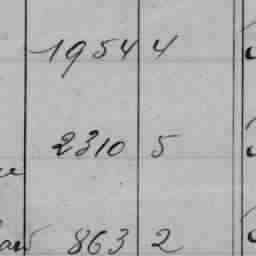 19544
2310 5
863 2